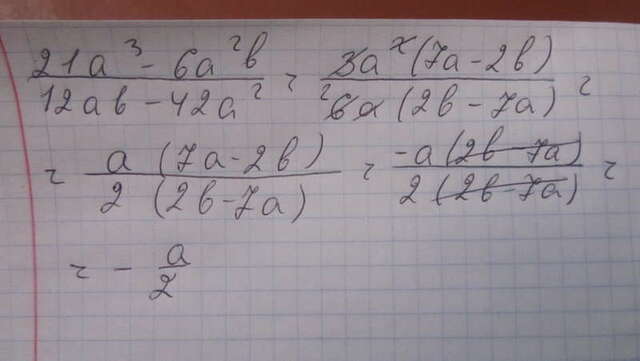 (21a³ - 6a²b)/(12ab - 42a²) = (3a²(7a - 2b))/(²6a(2b - 7a)) =
= (a (7a - 2b))/(2 (2b - 7a)) = (-a(2b - 7a))/(2(2b - 7a)) =
= - a/2